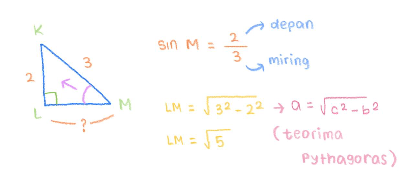 K
2
3
L
M
?
sin M = 2/3
depan
miring
LM = √3² - 2² → a = √c² - b²
LM = √5
(teorima
Pythagoras)